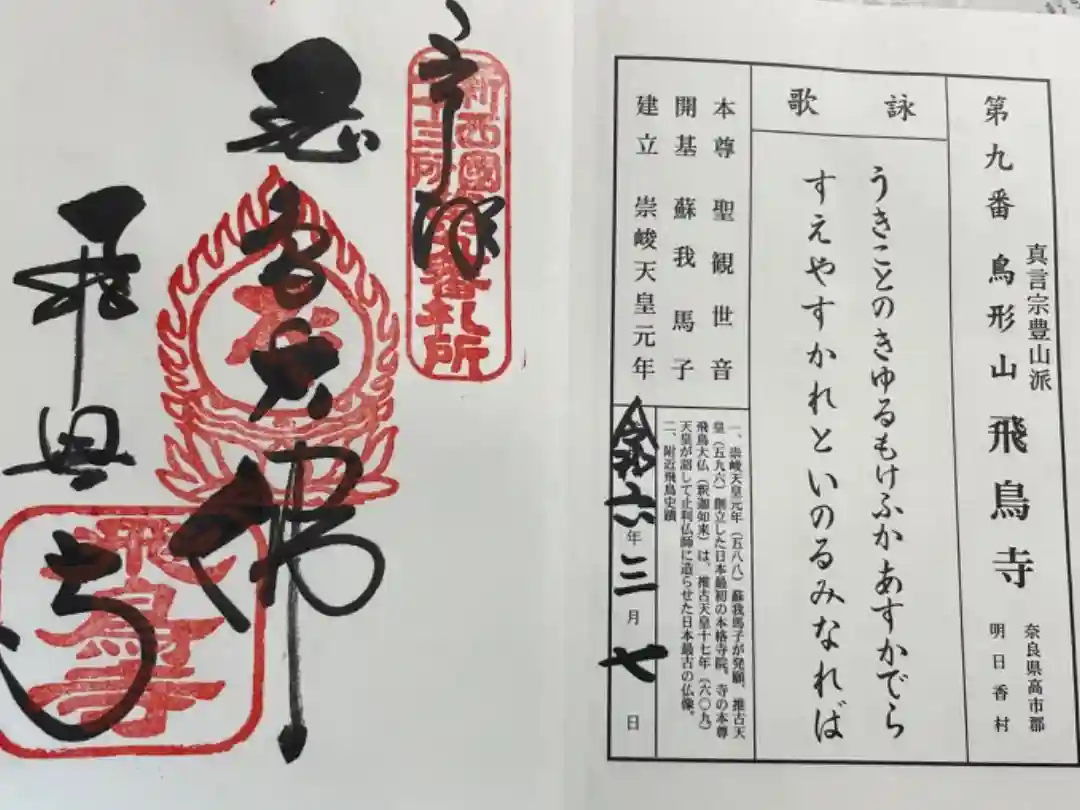 真言宗豊山派
第九番 鳥形山 飛鳥寺
奈良県高市郡
明日香村
詠歌
うきことのきゆるもけふかあすかでら
すえやすかれといのるみなれば
本尊 聖観世音
開基 蘇我馬子
建立 崇峻天皇元年
一、崇峻天皇元年(五八八)蘇我馬子が発願、推古天
皇(五九六)創立した日本最初の本格寺院。寺の本尊
飛鳥大仏(釈迦如来)は、推古天皇十七年(六〇九)
天皇が詔して止利仏師に造らせた日本最古の仏像。
二、附近飛鳥史蹟
令和六年三月七日
奉拝
新西國
三所 番札所
飛鳥大佛
飛鳥寺
飛鳥寺